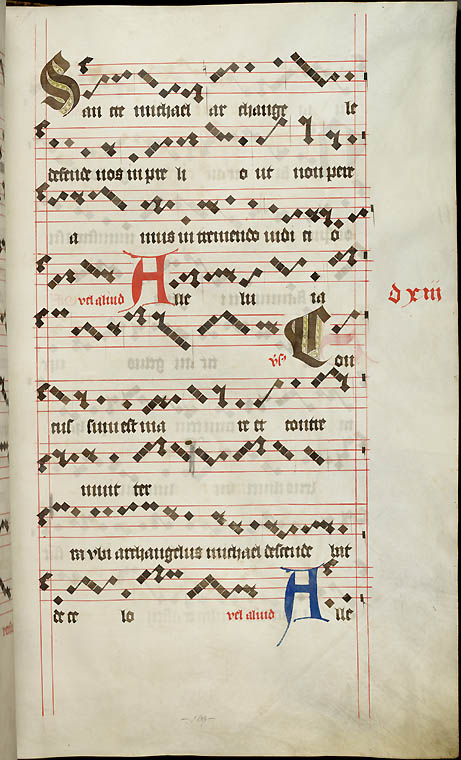 San cte michael ar change le
defende nos in pre li o ut non pere
a mus in tremendo iudi ci o
vel aliud Alle lu ia
d xiii
Con
cus sum est ma re et contre
muit ter
ra vbi archangelus michael descende bat
de ce lo vel aliud Alle